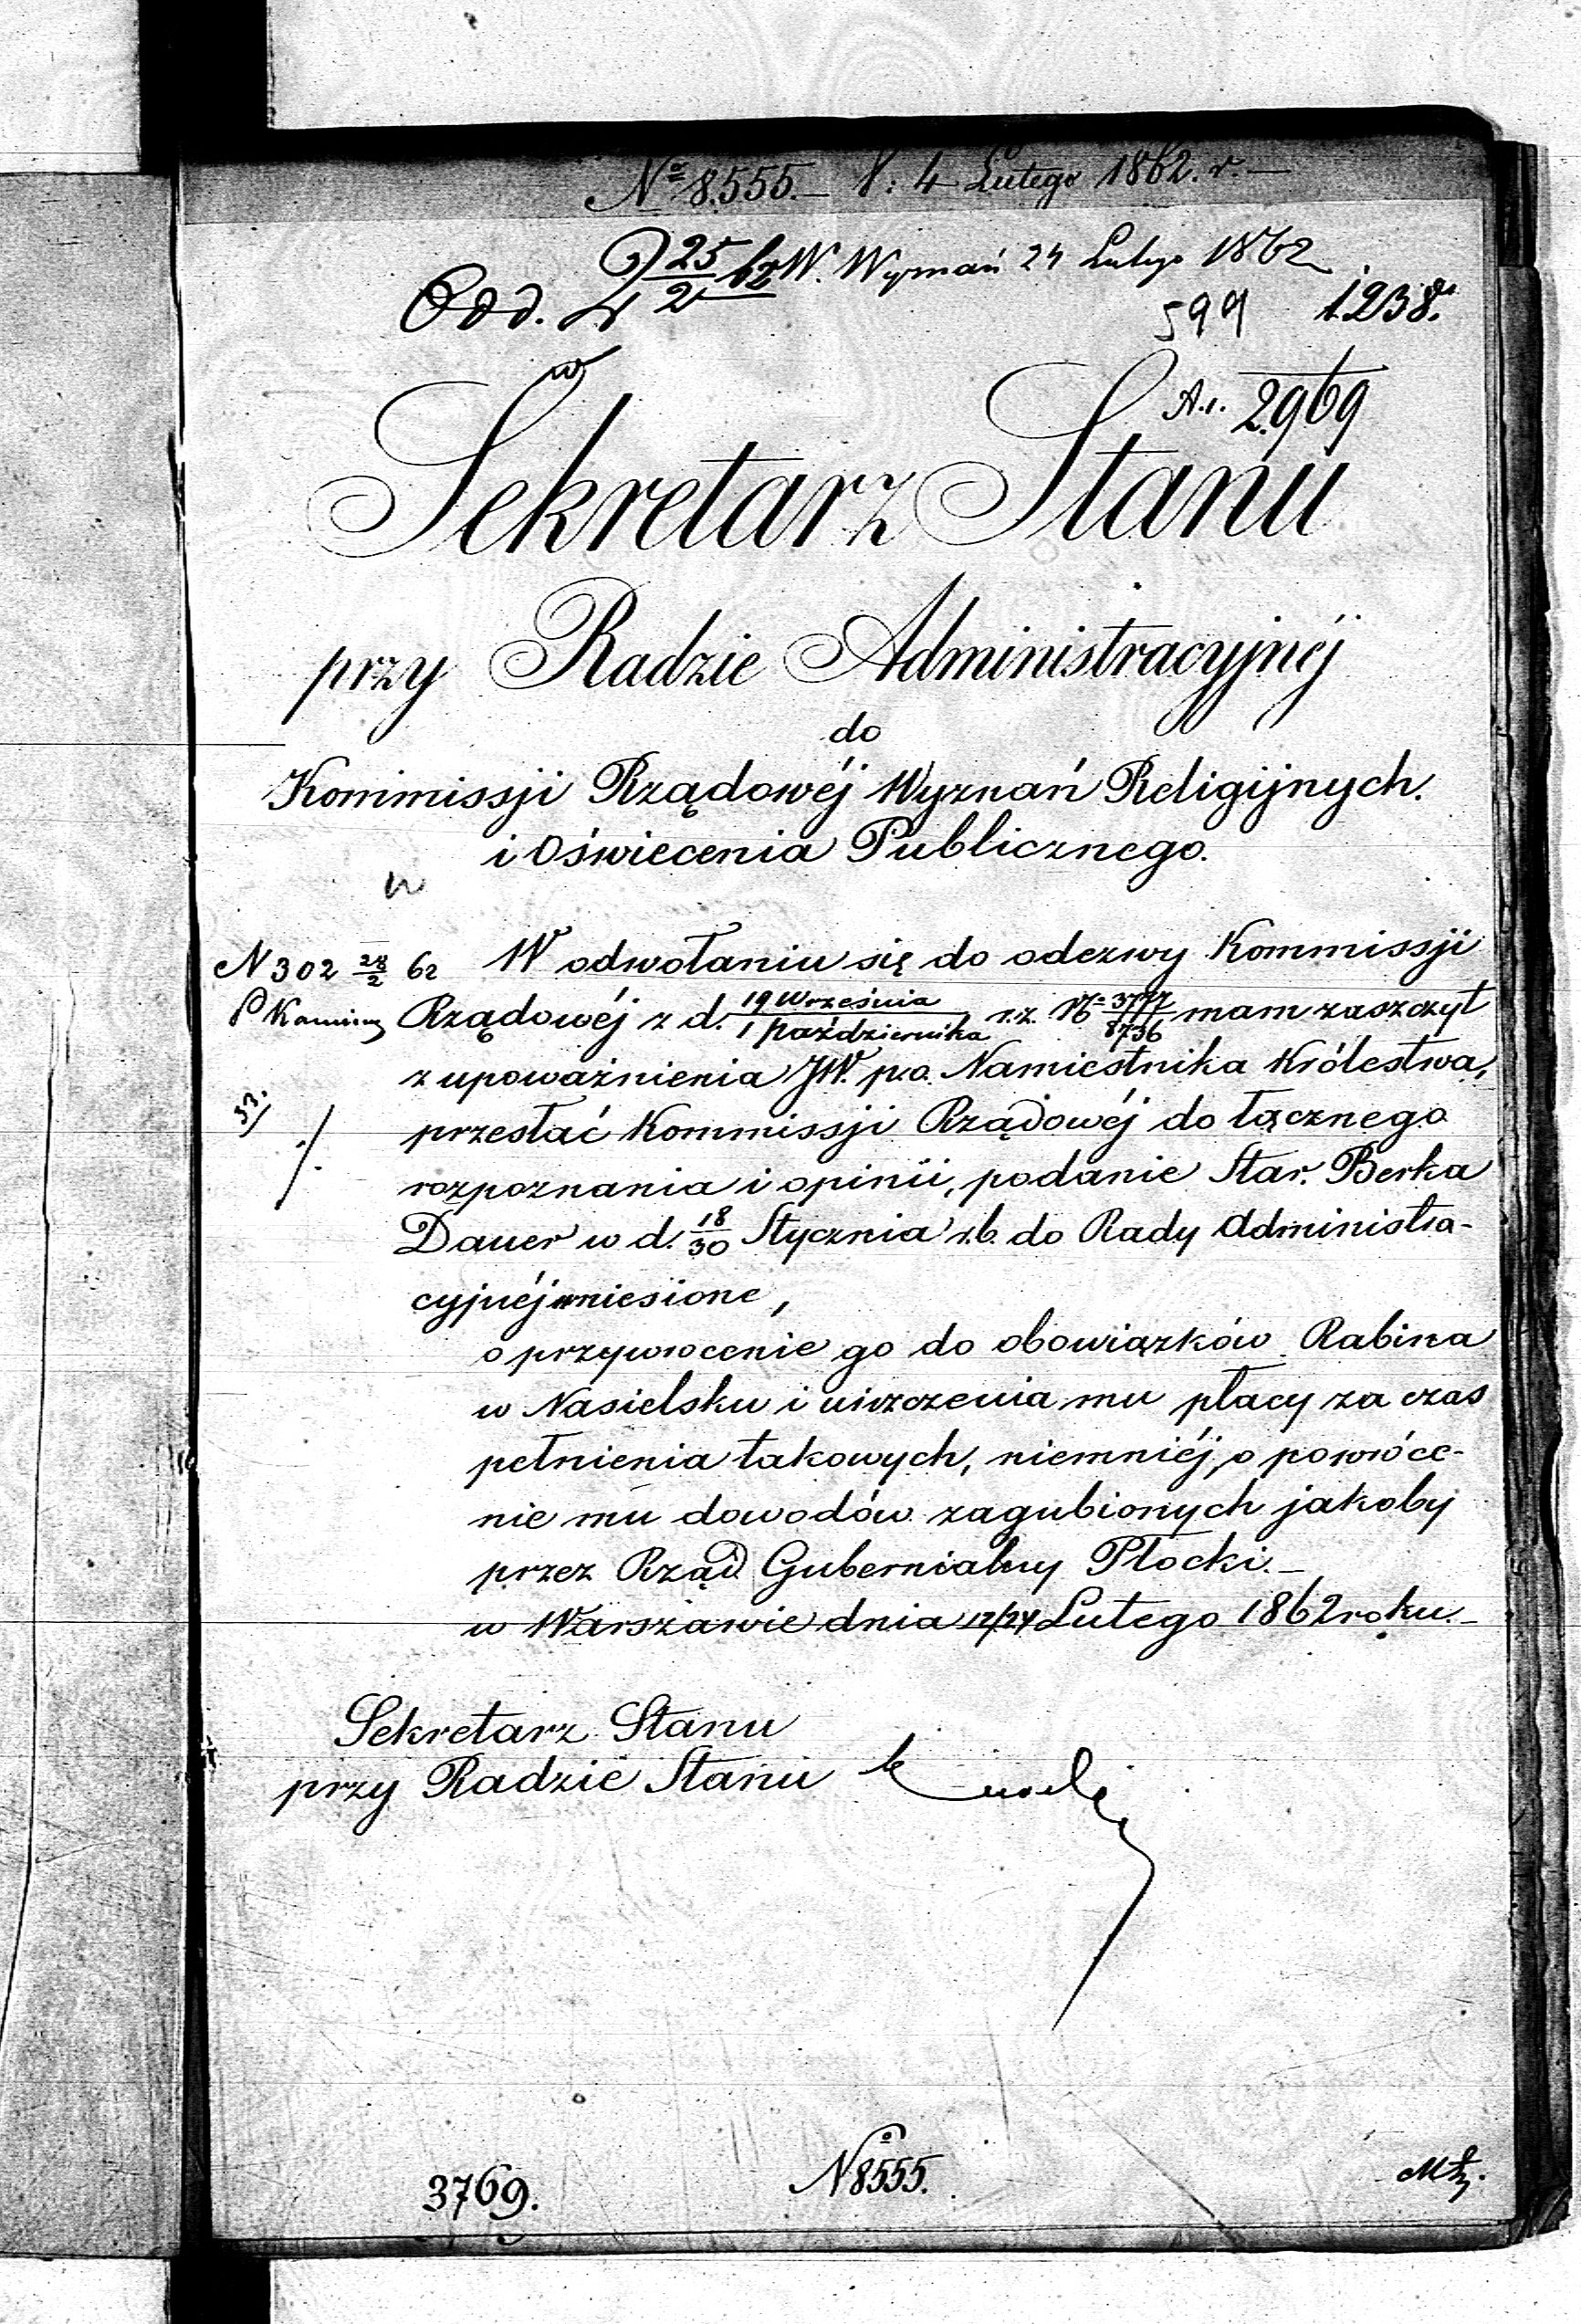 Nº 8555. – 4 Lutego 1862. r. –
Odd. 2 25/2 62 W. Wyznań 24 Lutego 1862
599 1238.
2969
Sekretarz Stanu
przy Radzie Administracyjnéj
do
Kommissji Rządowéj Wyznań Religijnych
i Oświecenia Publicznego.
N 302 28/2 62 W odwołaniu się do odezwy Kommissji
Rządowéj z d. 19 Września / 1 Października r.z. № 3777/8736 mam zaszczyt
z upoważnienia JW. p.o. Namiestnika Królestwa,
33. ./. przesłać Kommissji Rządowéj do łącznego
rozpoznania i opinii, podanie Star. Berka
Dauer w d. 18/30 Stycznia r.b. do Rady Administra-
cyjnéj wniesione,
o przywrocenie go do obowiązków Rabina
w Nasielsku i uiszczenia mu płacy za czas
pełnienia takowych, niemniéj, o powróce-
nie mu dowodów zagubionych jakoby
przez Rząd Gubernialny Płocki. –
w Warszawie dnia 12/24 Lutego 1862 roku. –
Sekretarz Stanu
przy Radzie Stanu
3769. Nº 8555.